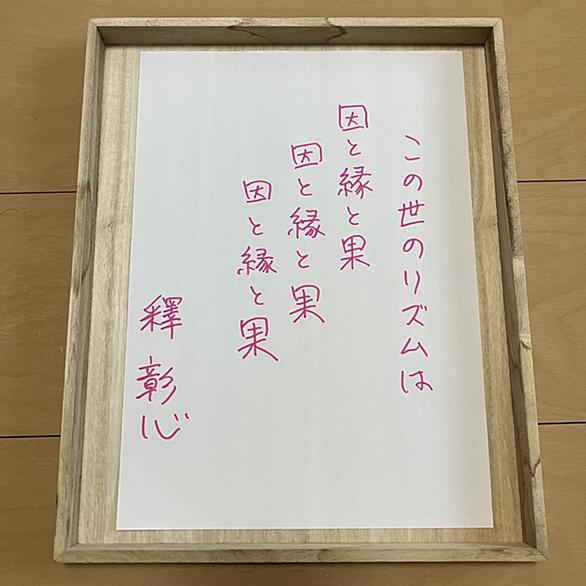 この世のリズムは
因と縁と果
因と縁と果
因と縁と果
釋 彰心